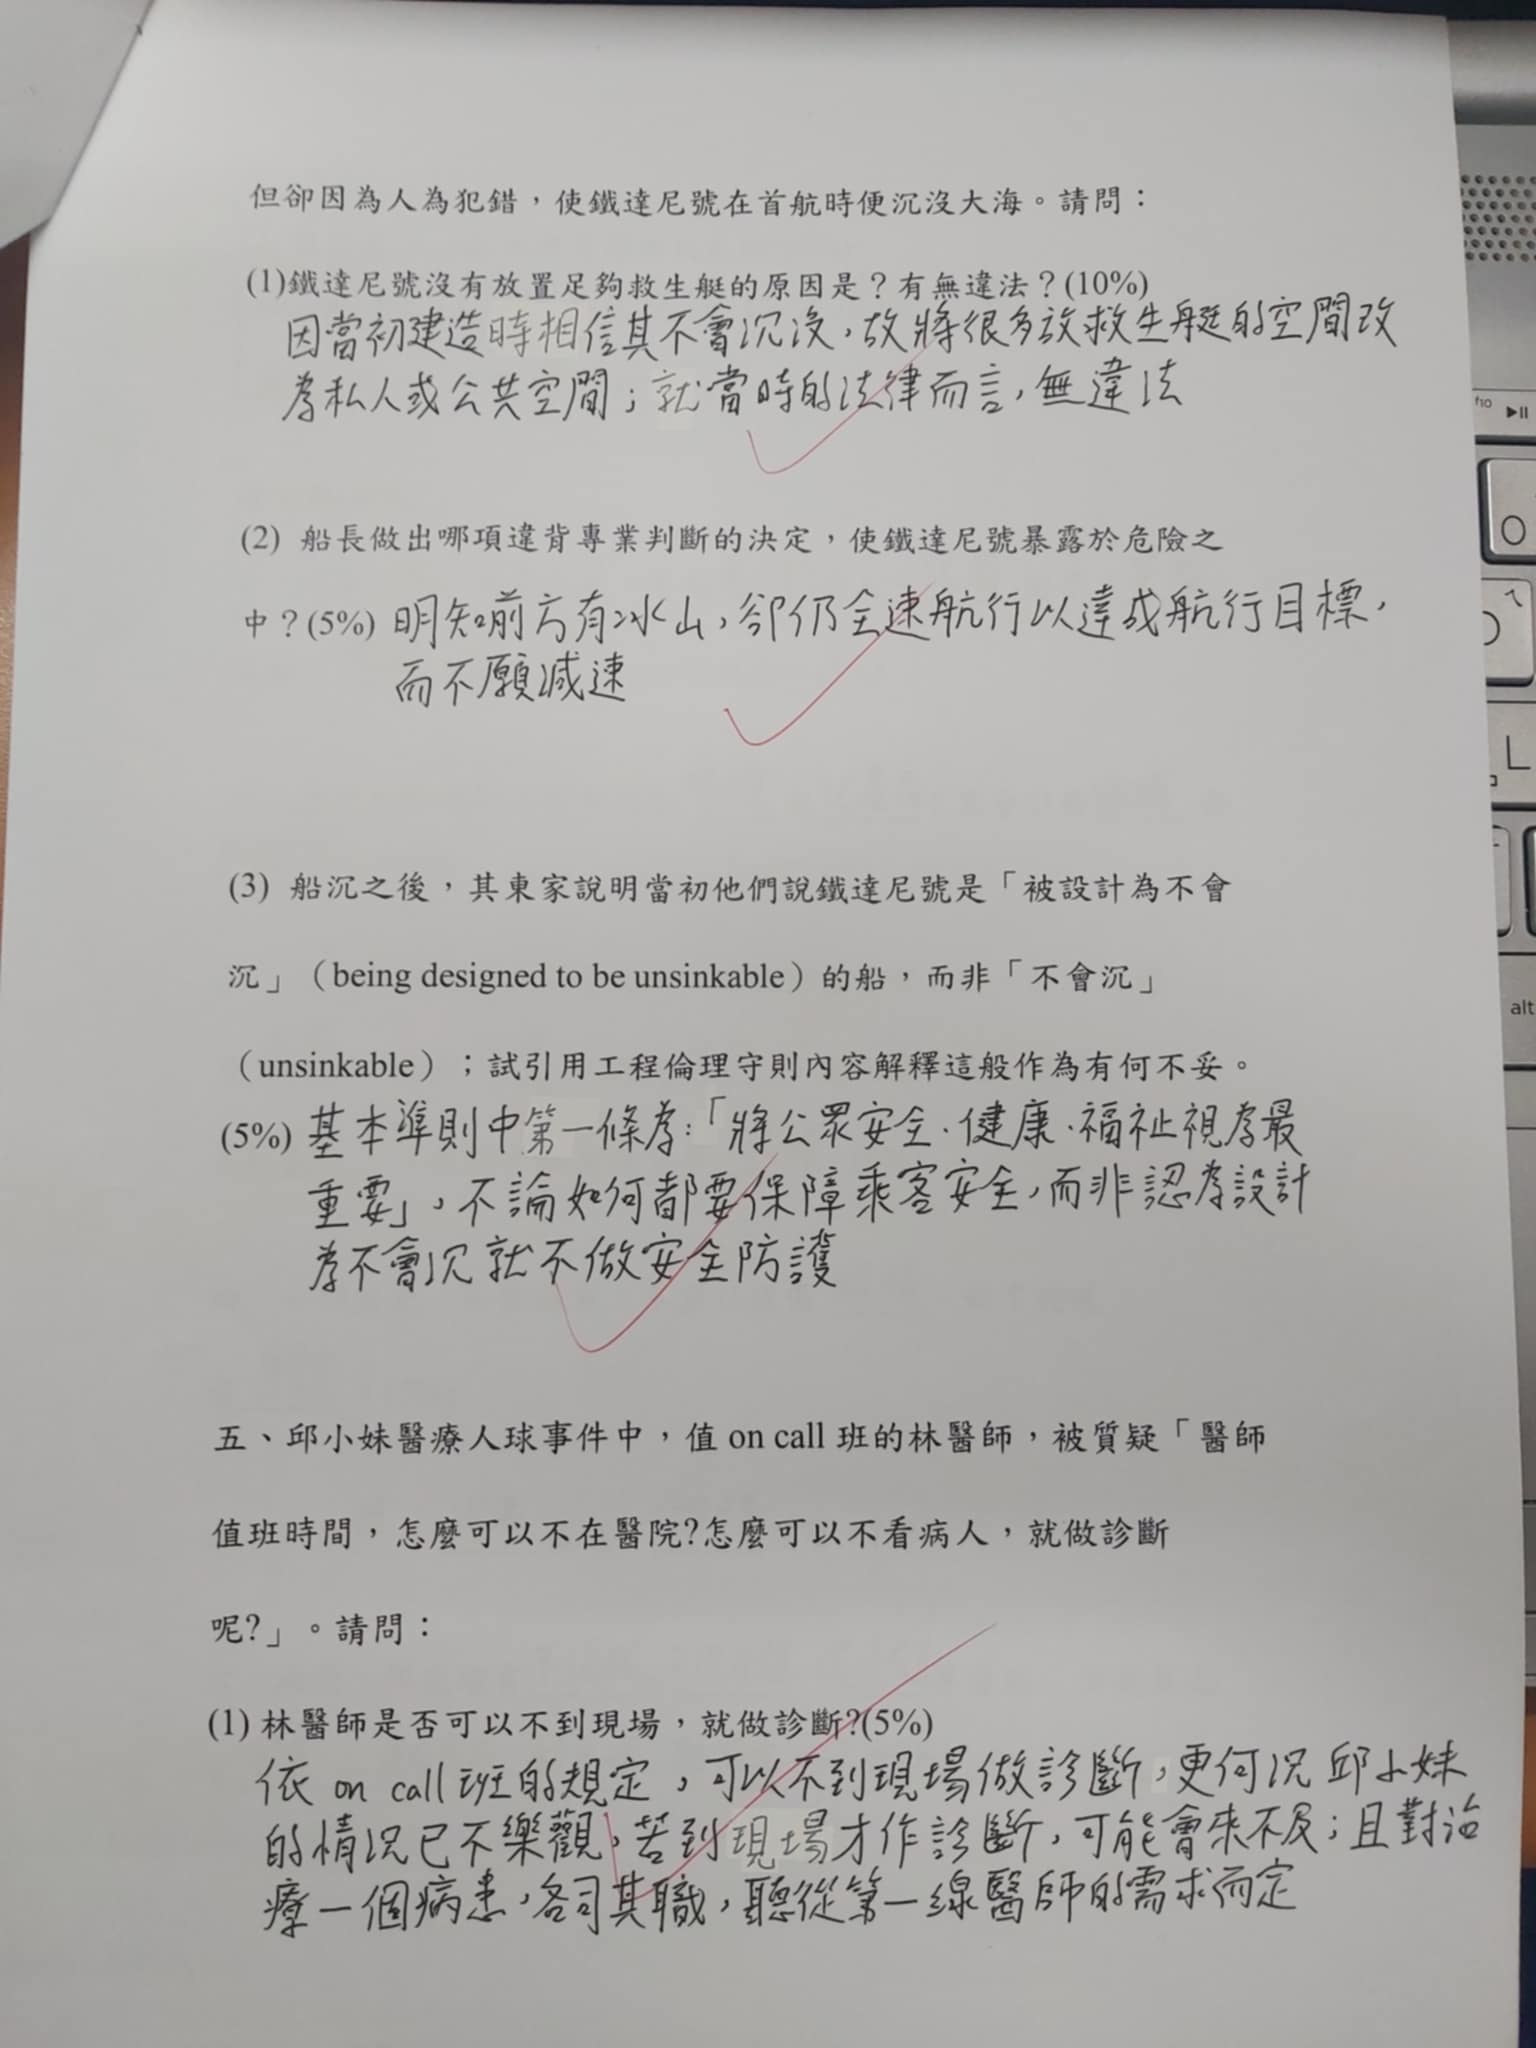 但卻因為人為犯錯，使鐵達尼號在首航時便沉沒大海。請問：
(1)鐵達尼號沒有放置足夠救生艇的原因是？有無違法？(10%)
因當初建造時相信其不會沉沒，故將很多放救生艇的空間改
為私人或公共空間；就當時的法律而言，無違法
(2) 船長做出哪項違背專業判斷的決定，使鐵達尼號暴露於危險之
中？(5%) 明知前方有冰山，卻仍全速航行以達成航行目標，
而不願減速
(3) 船沉之後，其東家說明當初他們說鐵達尼號是「被設計為不會
沉」（being designed to be unsinkable）的船，而非「不會沉」
（unsinkable）；試引用工程倫理守則內容解釋這般作為有何不妥。
(5%) 基本準則中第一條為：「將公眾安全、健康、福祉視為最
重要」，不論如何都要保障乘客安全，而非認為設計
為不會沉就不做安全防護
五、邱小妹醫療人球事件中，值 on call 班的林醫師，被質疑「醫師
值班時間，怎麼可以不在醫院?怎麼可以不看病人，就做診斷
呢?」。請問：
(1) 林醫師是否可以不到現場，就做診斷?(5%)
依 on call 班的規定，可以不到現場做診斷，更何況邱小妹
的情況已不樂觀，若到現場才作診斷，可能會來不及；且對治
療一個病患，各司其職，聽從第一線醫師的需求而定
f10
O
L
alt